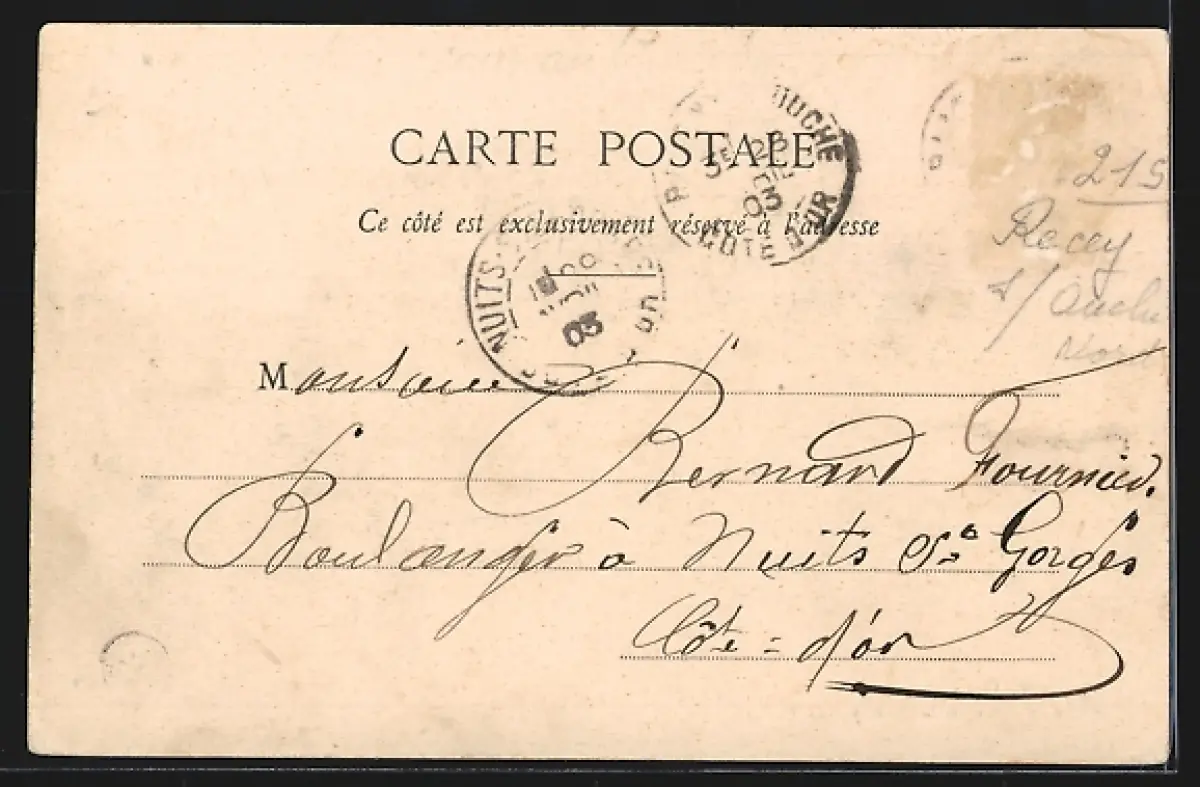 CARTE POSTALE
Ce côté est exclusivement réservé à l'adresse
OUCHE
COTE D'OR
03
NUITS-S
03
215
Recey
s/ Ouche
Monsieur
Bernard Fournier.
Boulanger à Nuits St Gorges
Côte-d'or